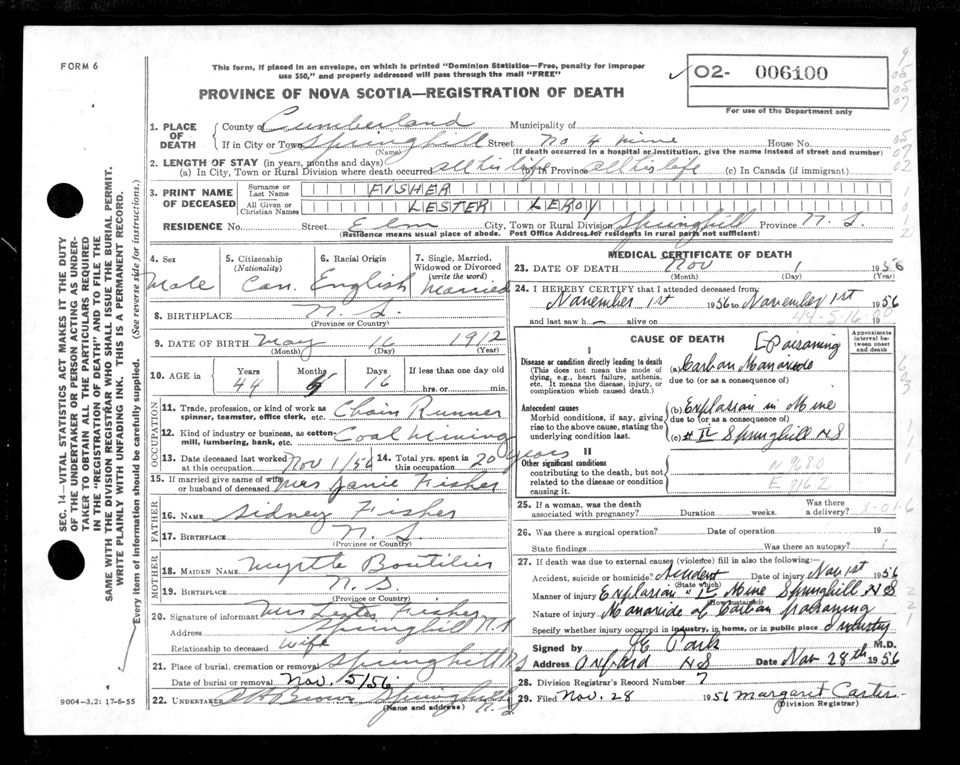 FORM 6
This form, if placed in an envelope, on which is printed "Dominion Statistics—Free, penalty for improper
use $50," and properly addressed will pass through the mail "FREE"
PROVINCE OF NOVA SCOTIA—REGISTRATION OF DEATH
02- 006100
For use of the Department only
1. PLACE OF DEATH County of Cumberland Municipality of
If in City or Town Springhill Street No 4 mine House No.
(Name) (If death occurred in a hospital or institution, give the name instead of street and number)
2. LENGTH OF STAY (in years, months and days)
(a) In City, Town or Rural Division where death occurred all his life (b) In Province all his life (c) In Canada (if immigrant)
3. PRINT NAME OF DECEASED
Surname or Last Name FISHER
All Given or Christian Names LESTER LEROY
RESIDENCE No. Street Elm City, Town or Rural Division Springhill Province N. S.
(Residence means usual place of abode. Post Office Address for residents in rural parts not sufficient)
4. Sex Male
5. Citizenship (Nationality) Can.
6. Racial Origin English
7. Single, Married, Widowed or Divorced (write the word) Married
8. BIRTHPLACE N. S.
(Province or Country)
9. DATE OF BIRTH May 16 1912
(Month) (Day) (Year)
10. AGE in Years 44 Months Days 16 If less than one day old hrs. or min.
OCCUPATION
11. Trade, profession, or kind of work as spinner, teamster, office clerk, etc. Chain Runner
12. Kind of industry or business, as cotton-mill, lumbering, bank, etc. Coal Mining
13. Date deceased last worked at this occupation Nov 1/56
14. Total yrs. spent in this occupation 20 years
15. If married give name of wife or husband of deceased Mrs Janie Fisher
FATHER
16. Name Sidney Fisher
17. Birthplace N. S.
(Province or Country)
MOTHER
18. Maiden Name Myrtle Boutilier
19. Birthplace N. S
(Province or Country)
20. Signature of informant Mrs Lester Fisher
Address Springhill N.S
Relationship to deceased wife
21. Place of burial, cremation or removal Springhill N S
Date of burial or removal Nov. 5/56
22. Undertaker Brown Springhill N.S.
(Name and address)
MEDICAL CERTIFICATE OF DEATH
23. DATE OF DEATH Nov 1 1956
(Month) (Day) (Year)
24. I HEREBY CERTIFY that I attended deceased from:
November 1st 1956 to November 1st 1956
and last saw h alive on 19
44-5-16-00
CAUSE OF DEATH
Approximate interval between onset and death
I
Disease or condition directly leading to death
(This does not mean the mode of dying, e.g., heart failure, asthenia, etc. It means the disease, injury, or complication which caused death.)
(a) Carbon Monoxide Poisoning
due to (or as a consequence of)
Antecedent causes
Morbid conditions, if any, giving rise to the above cause, stating the underlying condition last.
(b) Explosion in Mine
due to (or as a consequence of)
(c) # IV Springhill NS
II
Other significant conditions
contributing to the death, but not related to the disease or condition causing it.
N 968.0
E 916.2
25. If a woman, was the death associated with pregnancy? Duration weeks. Was there a delivery?
26. Was there a surgical operation? Date of operation 19
State findings Was there an autopsy?
27. If death was due to external causes (violence) fill in also the following:
Accident, suicide or homicide? Accident Date of injury Nov 1st 1956
(State which)
Manner of injury Explosion IV Mine Springhill N S
(How sustained)
Nature of injury Monoxide of Carbon poisoning
Specify whether injury occurred in industry, in home, or in public place Industry
Signed by Park M.D.
Address Oxford NS Date Nov 28th 1956
28. Division Registrar's Record Number 7
29. Filed Nov. 28 1956 Margaret Carter
(Division Registrar)
SEC. 14—VITAL STATISTICS ACT MAKES IT THE DUTY
OF THE UNDERTAKER OR PERSON ACTING AS UNDER-
TAKER TO OBTAIN ALL THE PARTICULARS REQUIRED
IN THE "REGISTRATION OF DEATH" AND TO FILE THE
SAME WITH THE DIVISION REGISTRAR WHO SHALL ISSUE THE BURIAL PERMIT.
WRITE PLAINLY WITH UNFADING INK. THIS IS A PERMANENT RECORD.
Every item of information should be carefully supplied. (See reverse side for instructions).
9004—3.2: 17-6-55